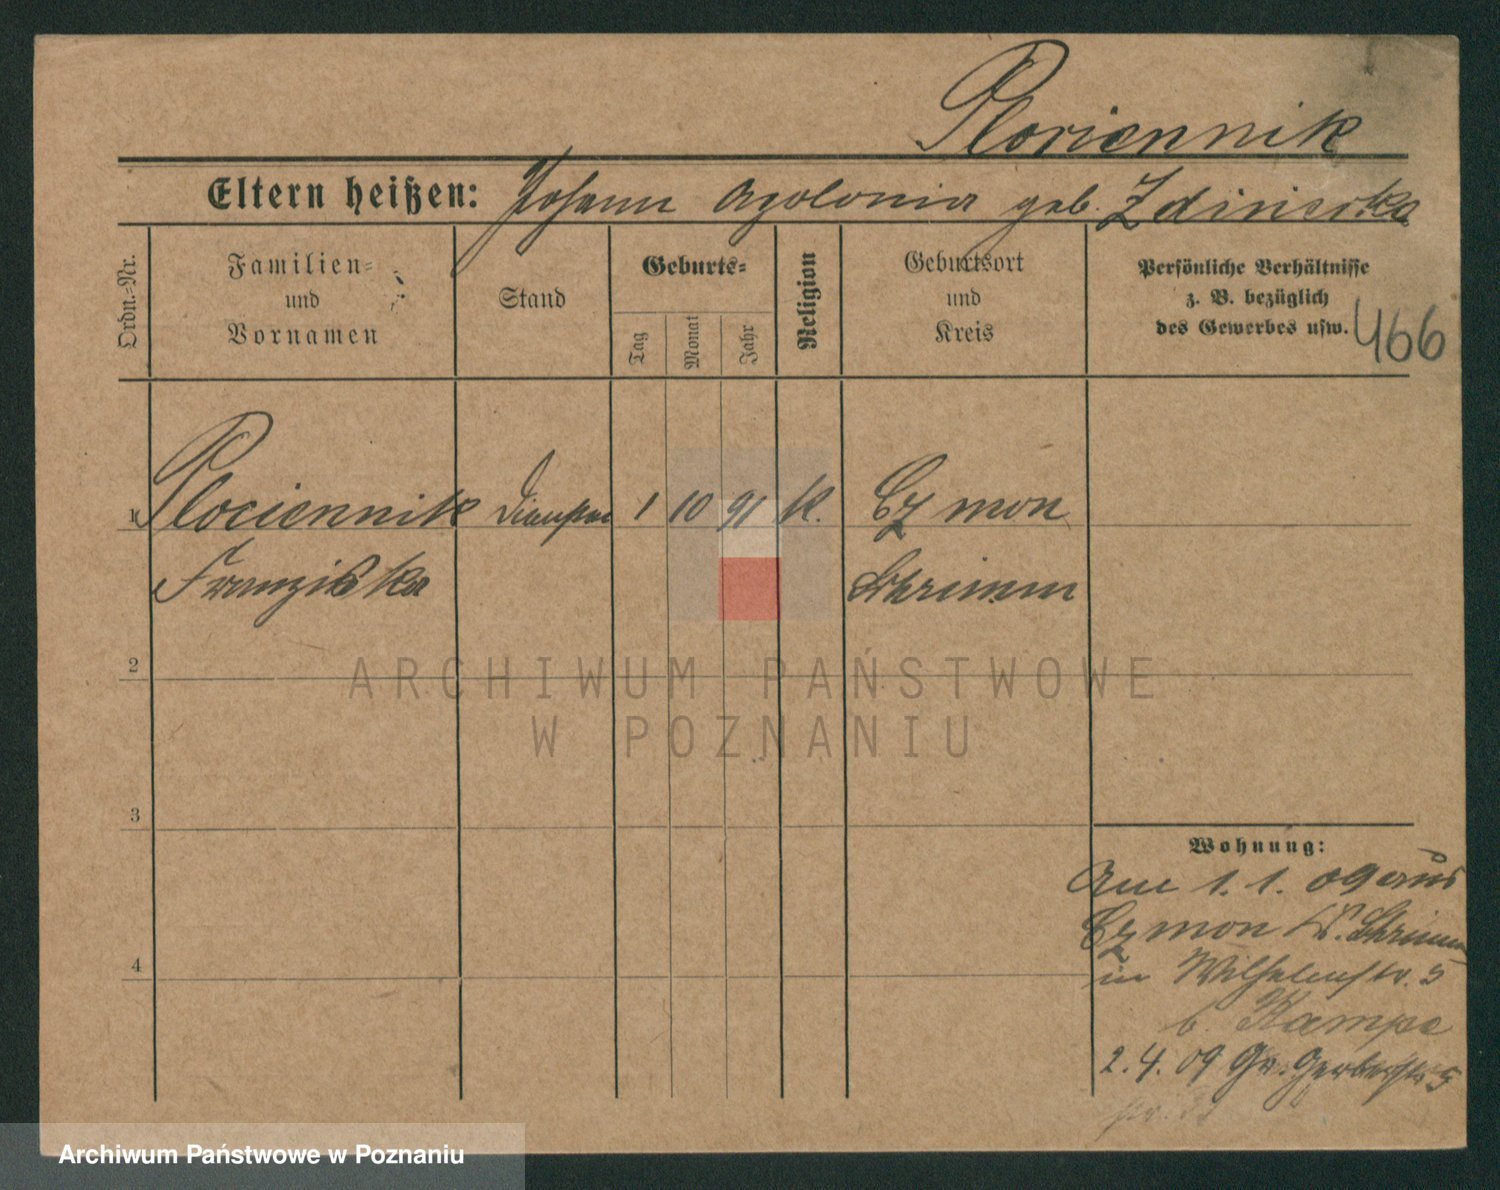 Plociennik
Eltern heißen: Johann Apolonia geb. Zdinicka
Ordn.-Nr.
Familien-
und
Vornamen
Stand
Geburts-
Tag
Monat
Jahr
Religion
Geburtsort
und
Kreis
Persönliche Verhältnisse
z. B. bezüglich
des Gewerbes usw.
466
1 Plociennik 1 10 91 K. Czmon
Franziska Schrimm
2
ARCHIWUM PAŃSTWOWE
W POZNANIU
3
4
Wohnung:
1. 1. 09 aus
Czmon K. Schrimm
in Wilhelmstr. 5
b. Kampe
2. 4. 09 Gr. Gerberstr 5
Archiwum Państwowe w Poznaniu